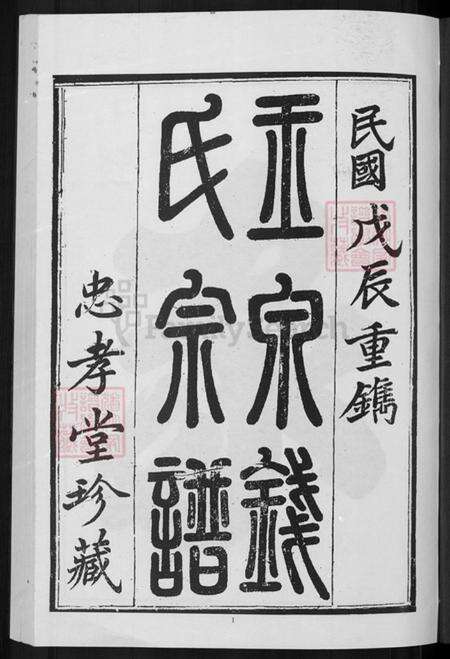 民國戊辰重鐫
玉泉錢
氏宗譜
忠孝堂珍藏
1